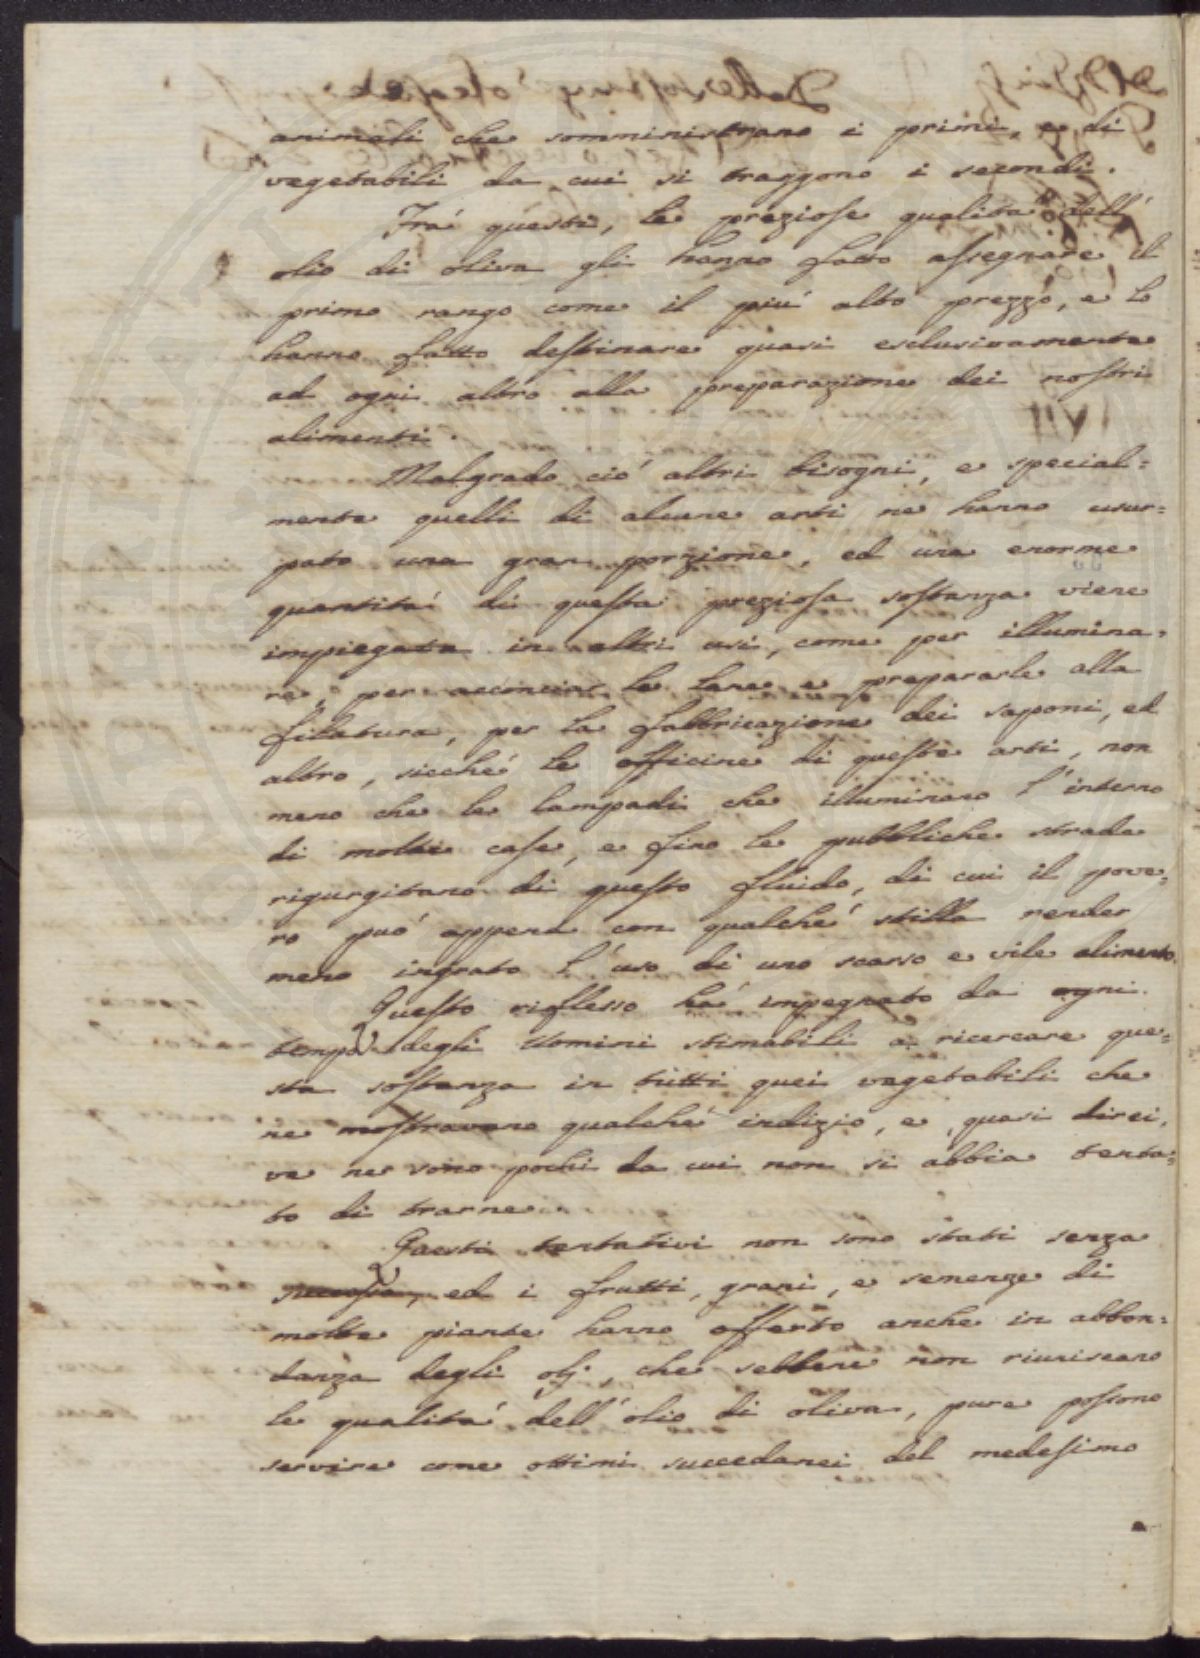 animali che somministrano i primi, e di
vegetabili da cui si traggono i secondi.
Frá questi, le preziose qualitá dell'
olio di oliva gli hanno fatto assegnare il
primo rango come il piú alto prezzo, e lo
hanno fatto destinare quasi esclusivamente
ad ogni altro alla preparazione dei nostri
alimenti.
Malgrado ció altri bisogni, e special=
mente quelli di alcune arti ne hanno usur=
pato una gran porzione, ed una enorme
quantitá di questa preziosa sostanza viene
impiegata in altri usi, come per illumina=
re, per acconciar le lane e prepararle alla
filatura, per la fabbricazione dei saponi, ed
altro, sicché le officine di queste arti, non
meno che le lampadi che illuminano l'interno
di molte case, e fino le pubbliche strade
rigurgitano di questo fluido, di cui il pove=
ro puó appena con qualché stilla render
meno ingrato l'uso di uno scarso e vile alimento.
Questo riflesso há impegnato da ogni
tempo degli Uomini stimabili a ricercare que=
sta sostanza in tutti quei vegetabili che
ne mostravano qualché indizio, e, quasi direi,
ve ne sono pochi da cui non si abbia tenta=
to di trarne.
Questi tentativi non sono stati senza
successo, ed i frutti, grani, e semenze di
molte piante hanno offerto anche in abbon=
danza degli olj, che sebbene non riuniscano
le qualitá dell'olio di oliva, pure possono
servire come ottimi succedanei del medesimo